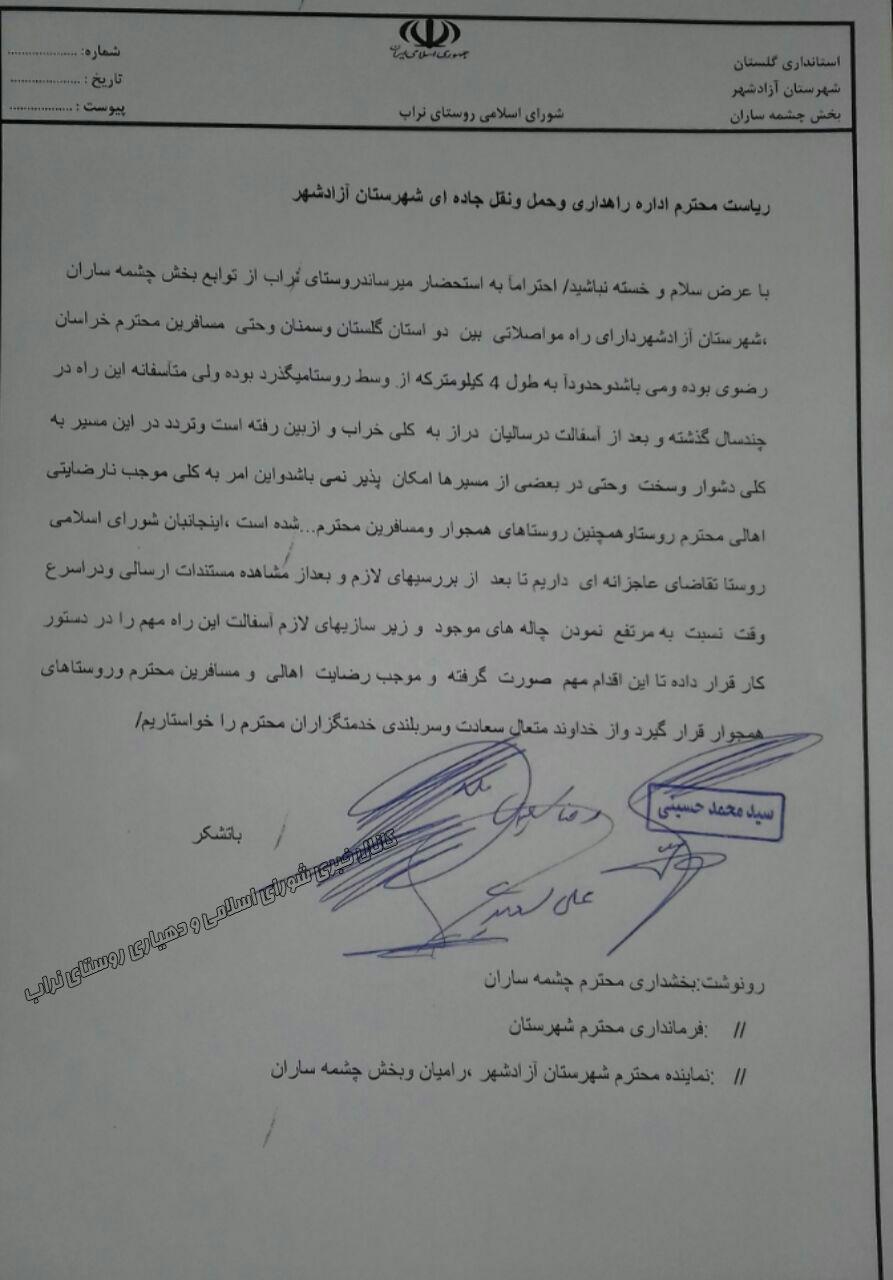 جمهوری اسلامی ایران
استانداری گلستان
شهرستان آزادشهر
بخش چشمه ساران
شورای اسلامی روستای نراب
شماره: ....................
تاریخ : ....................
پیوست : ..................
ریاست محترم اداره راهداری وحمل ونقل جاده ای شهرستان آزادشهر
با عرض سلام و خسته نباشید/ احتراماً به استحضار میرساندروستای نراب از توابع بخش چشمه ساران
،شهرستان آزادشهردارای راه مواصلاتی بین دو استان گلستان وسمنان وحتی مسافرین محترم خراسان
رضوی بوده ومی باشدوحدوداً به طول 4 کیلومترکه از وسط روستامیگذرد بوده ولی متأسفانه این راه در
چندسال گذشته و بعد از آسفالت درسالیان دراز به کلی خراب و ازبین رفته است وتردد در این مسیر به
کلی دشوار وسخت وحتی در بعضی از مسیرها امکان پذیر نمی باشدواین امر به کلی موجب نارضایتی
اهالی محترم روستاوهمچنین روستاهای همجوار ومسافرین محترم...شده است ،اینجانبان شورای اسلامی
روستا تقاضای عاجزانه ای داریم تا بعد از بررسیهای لازم و بعداز مشاهده مستندات ارسالی ودراسرع
وقت نسبت به مرتفع نمودن چاله های موجود و زیر سازیهای لازم آسفالت این راه مهم را در دستور
کار قرار داده تا این اقدام مهم صورت گرفته و موجب رضایت اهالی و مسافرین محترم وروستاهای
همجوار قرار گیرد واز خداوند متعال سعادت وسربلندی خدمتگزاران محترم را خواستاریم/
سید محمد حسینی
رضا
علی
باتشکر
کانال خبری شورای اسلامی و دهیاری روستای نراب
رونوشت:بخشداری محترم چشمه ساران
// :فرمانداری محترم شهرستان
// :نماینده محترم شهرستان آزادشهر ،رامیان وبخش چشمه ساران